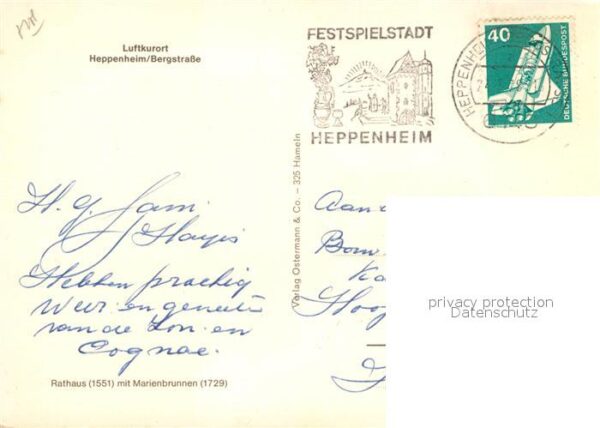 Luftkurort
Heppenheim/Bergstraße
FESTSPIELSTADT
HEPPENHEIM
HEPPENHEIM
40
DEUTSCHE BUNDESPOST
Verlag Ostermann & Co. – 325 Hameln
Hebben prachtig
weer en genieten
van de zon en
Cognac.
Rathaus (1551) mit Marienbrunnen (1729)
Aan
privacy protection
Datenschutz